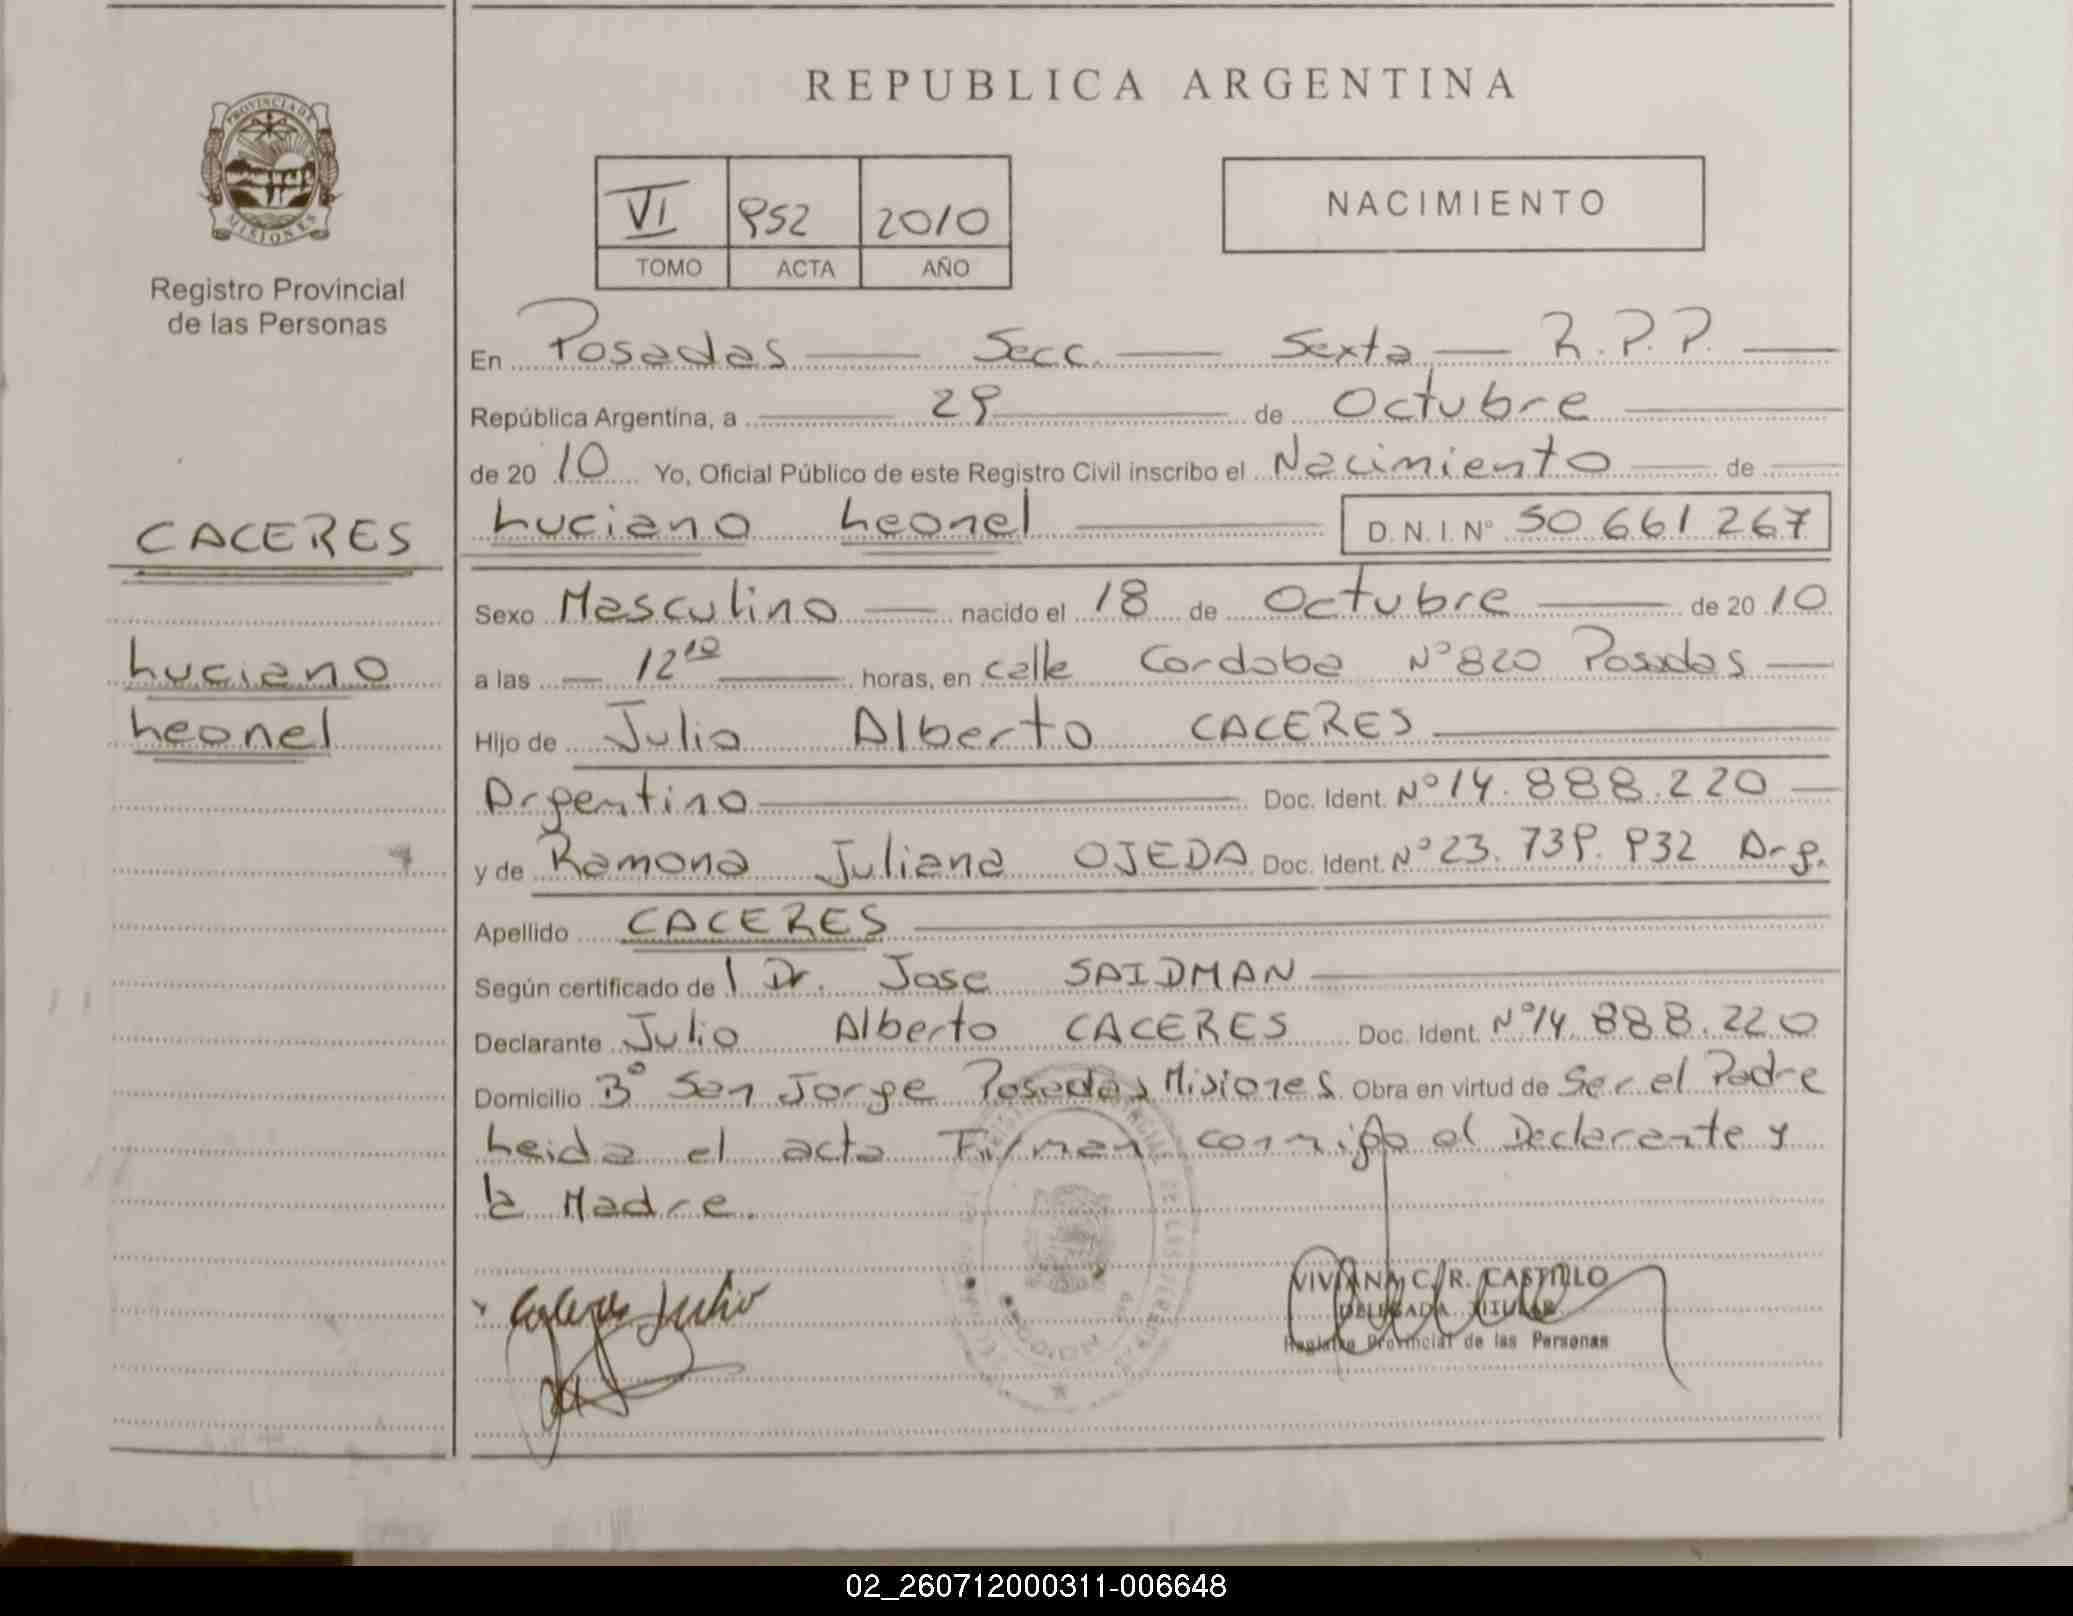 REPUBLICA ARGENTINA
PROVINCIA DE
MISIONES
Registro Provincial
de las Personas
VI 952 2010
TOMO ACTA AÑO
NACIMIENTO
En Posadas Secc. Sexta R.P.P.
República Argentina, a 29 de Octubre
de 20 10 Yo, Oficial Público de este Registro Civil inscribo el Nacimiento de
CACERES
Luciano Leonel D.N.I. Nº 50 661 267
Sexo Masculino nacido el 18 de Octubre de 20 10
Luciano
Leonel
a las 12 10 horas, en calle Cordoba Nº 820 Posadas
Hijo de Julio Alberto CACERES
Argentino Doc. Ident. Nº 14.888.220
y de Ramona Juliana OJEDA Doc. Ident. Nº 23.739.932 Arg.
Apellido CACERES
Según certificado de l Dr. Jose SAIDMAN
Declarante Julio Alberto CACERES Doc. Ident. Nº 14.888.220
Domicilio Bº San Jorge Posadas Misiones Obra en virtud de Ser el Padre
Leida el acta Firman conmigo el Declarante y
la Madre.
Caceres Julio
VIVIANA C. R. CASTILLO
DELEGADA TITULAR
Registro Provincial de las Personas
02_260712000311-006648